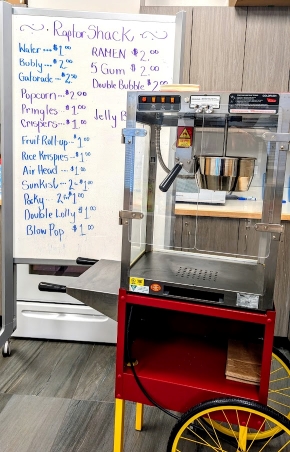 Raptor Shack
Water --- $1.00
Bubly --- $2.00
Gatorade -- $2.50
Popcorn --- $2.00
Pringles --- $1.00
Crispers --- $1.00
Fruit Roll-up -- $1.00
Rice Krispies - $1.00
Air Head --- $1.00
Sunkist -- 2 - $1.00
Pocky --- 2 for $1.00
Double Lolly $1.00
Blow Pop $1.00
RAMEN $2.00
5 Gum $2.00
Double Bubble $2.
Jelly B